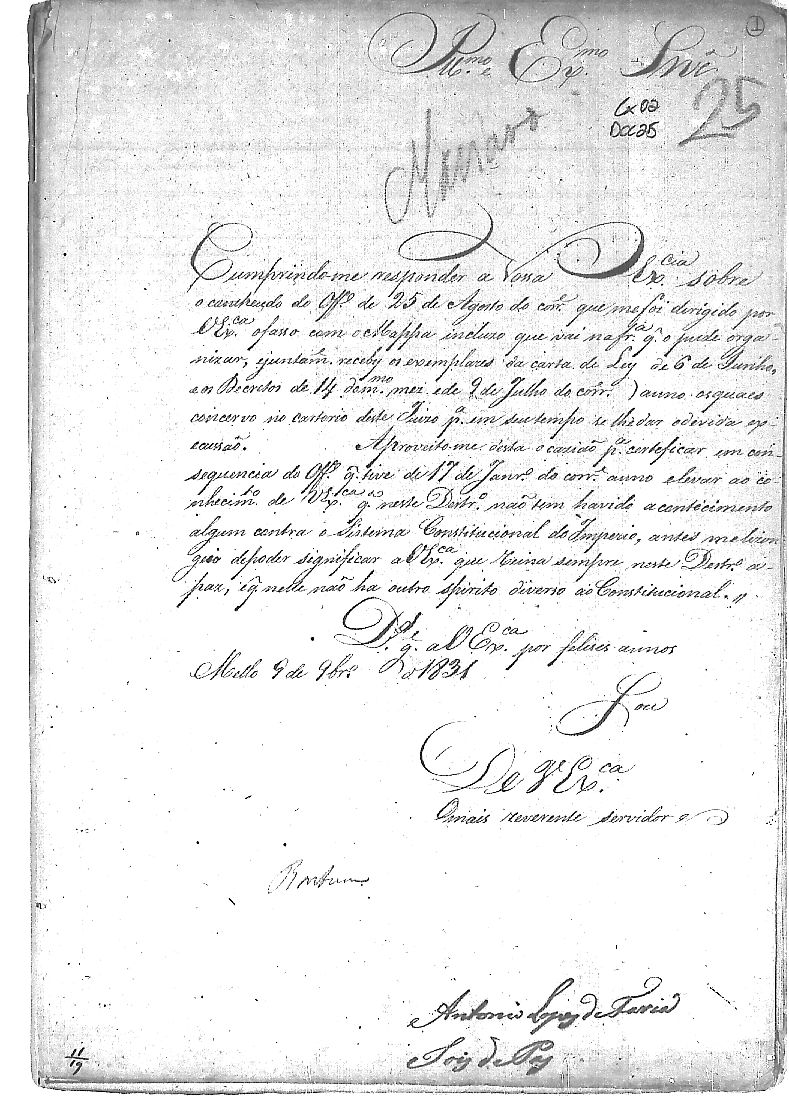 ①
Rmo. e Exmo. Snr.
Cx 02
Doc 25
25
Cumprindo-me responder a Vossa Excia. sobre
o contheudo do Offo. de 25 de Agosto do corre. que me foi dirigido por
VExca. o fasso com o Mappa incluzo que vai na fra. q. o pude orga-
nizar, ejuntamte. receby os exemplares da carta de Ley de 6 de Junho,
e os Decretos de 14 do mmo. mez e de 9 de Julho do corre. anno os quaes
concervo no cartorio deste Juizo pa. em seu tempo se lhe dar a devida ex-
ecussão. Aproveito-me desta ocazião pa. certeficar em con
sequencia do Offo. q. tive de 17 de Janro. do corre. anno elevar ao co-
nhecimto. de VExca. q. neste Destro. não tem havido acontecimento
algum contra o Sistema Constitucional do Imperio, antes me lizon
geio de poder significar a VExca. que Reina sempre neste Destro. a
paz, e q. nelle não ha outro spirito diverso ao Constitucional. „
Ds. gde. a VExca. por felises annos
Mello 9 de 9bro. d 1831
Sou
De VExca.
O mais reverente servidor
Antonio Lopes de Faria
Joiz de Paz
11/19